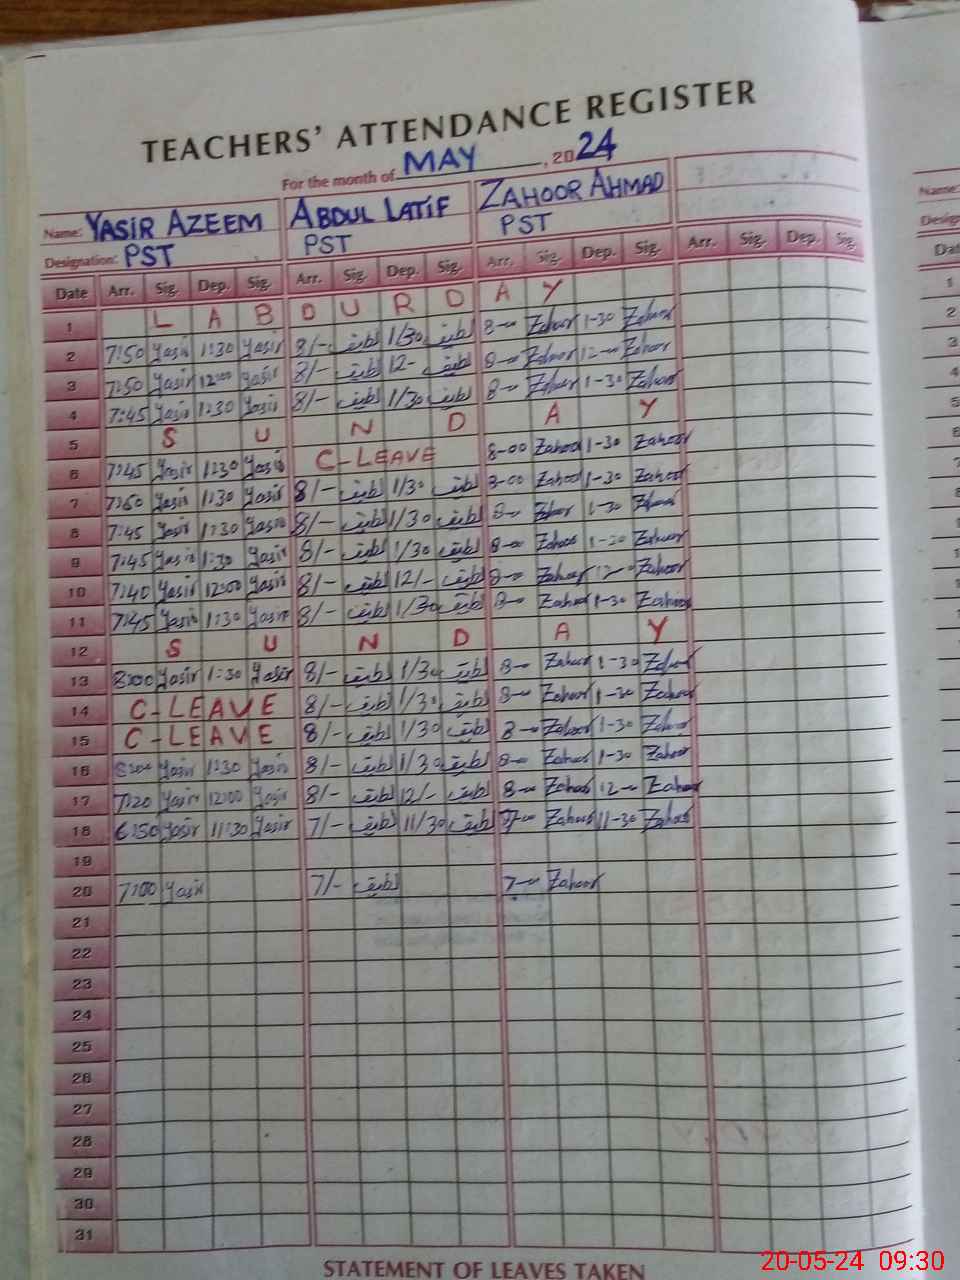 TEACHERS' ATTENDANCE REGISTER
For the month of MAY, 2024
Name: YASIR AZEEM ABDUL LATIF ZAHOOR AHMAD Name:
Designation: PST PST PST
Date Arr. Sig. Dep. Sig. Arr. Sig. Dep. Sig. Arr. Sig. Dep. Sig. Arr. Sig. Dep. Sig.
1 L A B O U R D A Y
2 7:50 Yasir 1:30 Yasir 8/- لطیف 1/30 لطیف 8-00 Zahoor 1-30 Zahoor
3 7:50 Yasir 12:00 Yasir 8/- لطیف 12- لطیف 8-00 Zahoor 12-00 Zahoor
4 7:45 Yasir 1:30 Yasir 8/- لطیف 1/30 لطیف 8-00 Zahoor 1-30 Zahoor
5 S U N D A Y
6 7:45 Yasir 1:30 Yasir C-LEAVE 8-00 Zahoor 1-30 Zahoor
7 7:50 Yasir 1:30 Yasir 8/- لطیف 1/30 لطیف 8-00 Zahoor 1-30 Zahoor
8 7:45 Yasir 1:30 Yasir 8/- لطیف 1/30 لطیف 8-00 Zahoor 1-30 Zahoor
9 7:45 Yasir 1:30 Yasir 8/- لطیف 1/30 لطیف 8-00 Zahoor 1-30 Zahoor
10 7:40 Yasir 12:00 Yasir 8/- لطیف 12/- لطیف 8-00 Zahoor 12-00 Zahoor
11 7:45 Yasir 1:30 Yasir 8/- لطیف 1/30 لطیف 8-00 Zahoor 1-30 Zahoor
12 S U N D A Y
13 8:00 Yasir 1:30 Yasir 8/- لطیف 1/30 لطیف 8-00 Zahoor 1-30 Zahoor
14 C-LEAVE 8/- لطیف 1/30 لطیف 8-00 Zahoor 1-30 Zahoor
15 C-LEAVE 8/- لطیف 1/30 لطیف 8-00 Zahoor 1-30 Zahoor
16 8:00 Yasir 1:30 Yasir 8/- لطیف 1/30 لطیف 8-00 Zahoor 1-30 Zahoor
17 7:20 Yasir 12:00 Yasir 8/- لطیف 12/- لطیف 8-00 Zahoor 12-00 Zahoor
18 6:50 Yasir 11:30 Yasir 7/- لطیف 11/30 لطیف 7-00 Zahoor 11-30 Zahoor
19
20 7:00 Yasir 7/- لطیف 7-00 Zahoor
21
22
23
24
25
26
27
28
29
30
31
STATEMENT OF LEAVES TAKEN
20-05-24 09:30